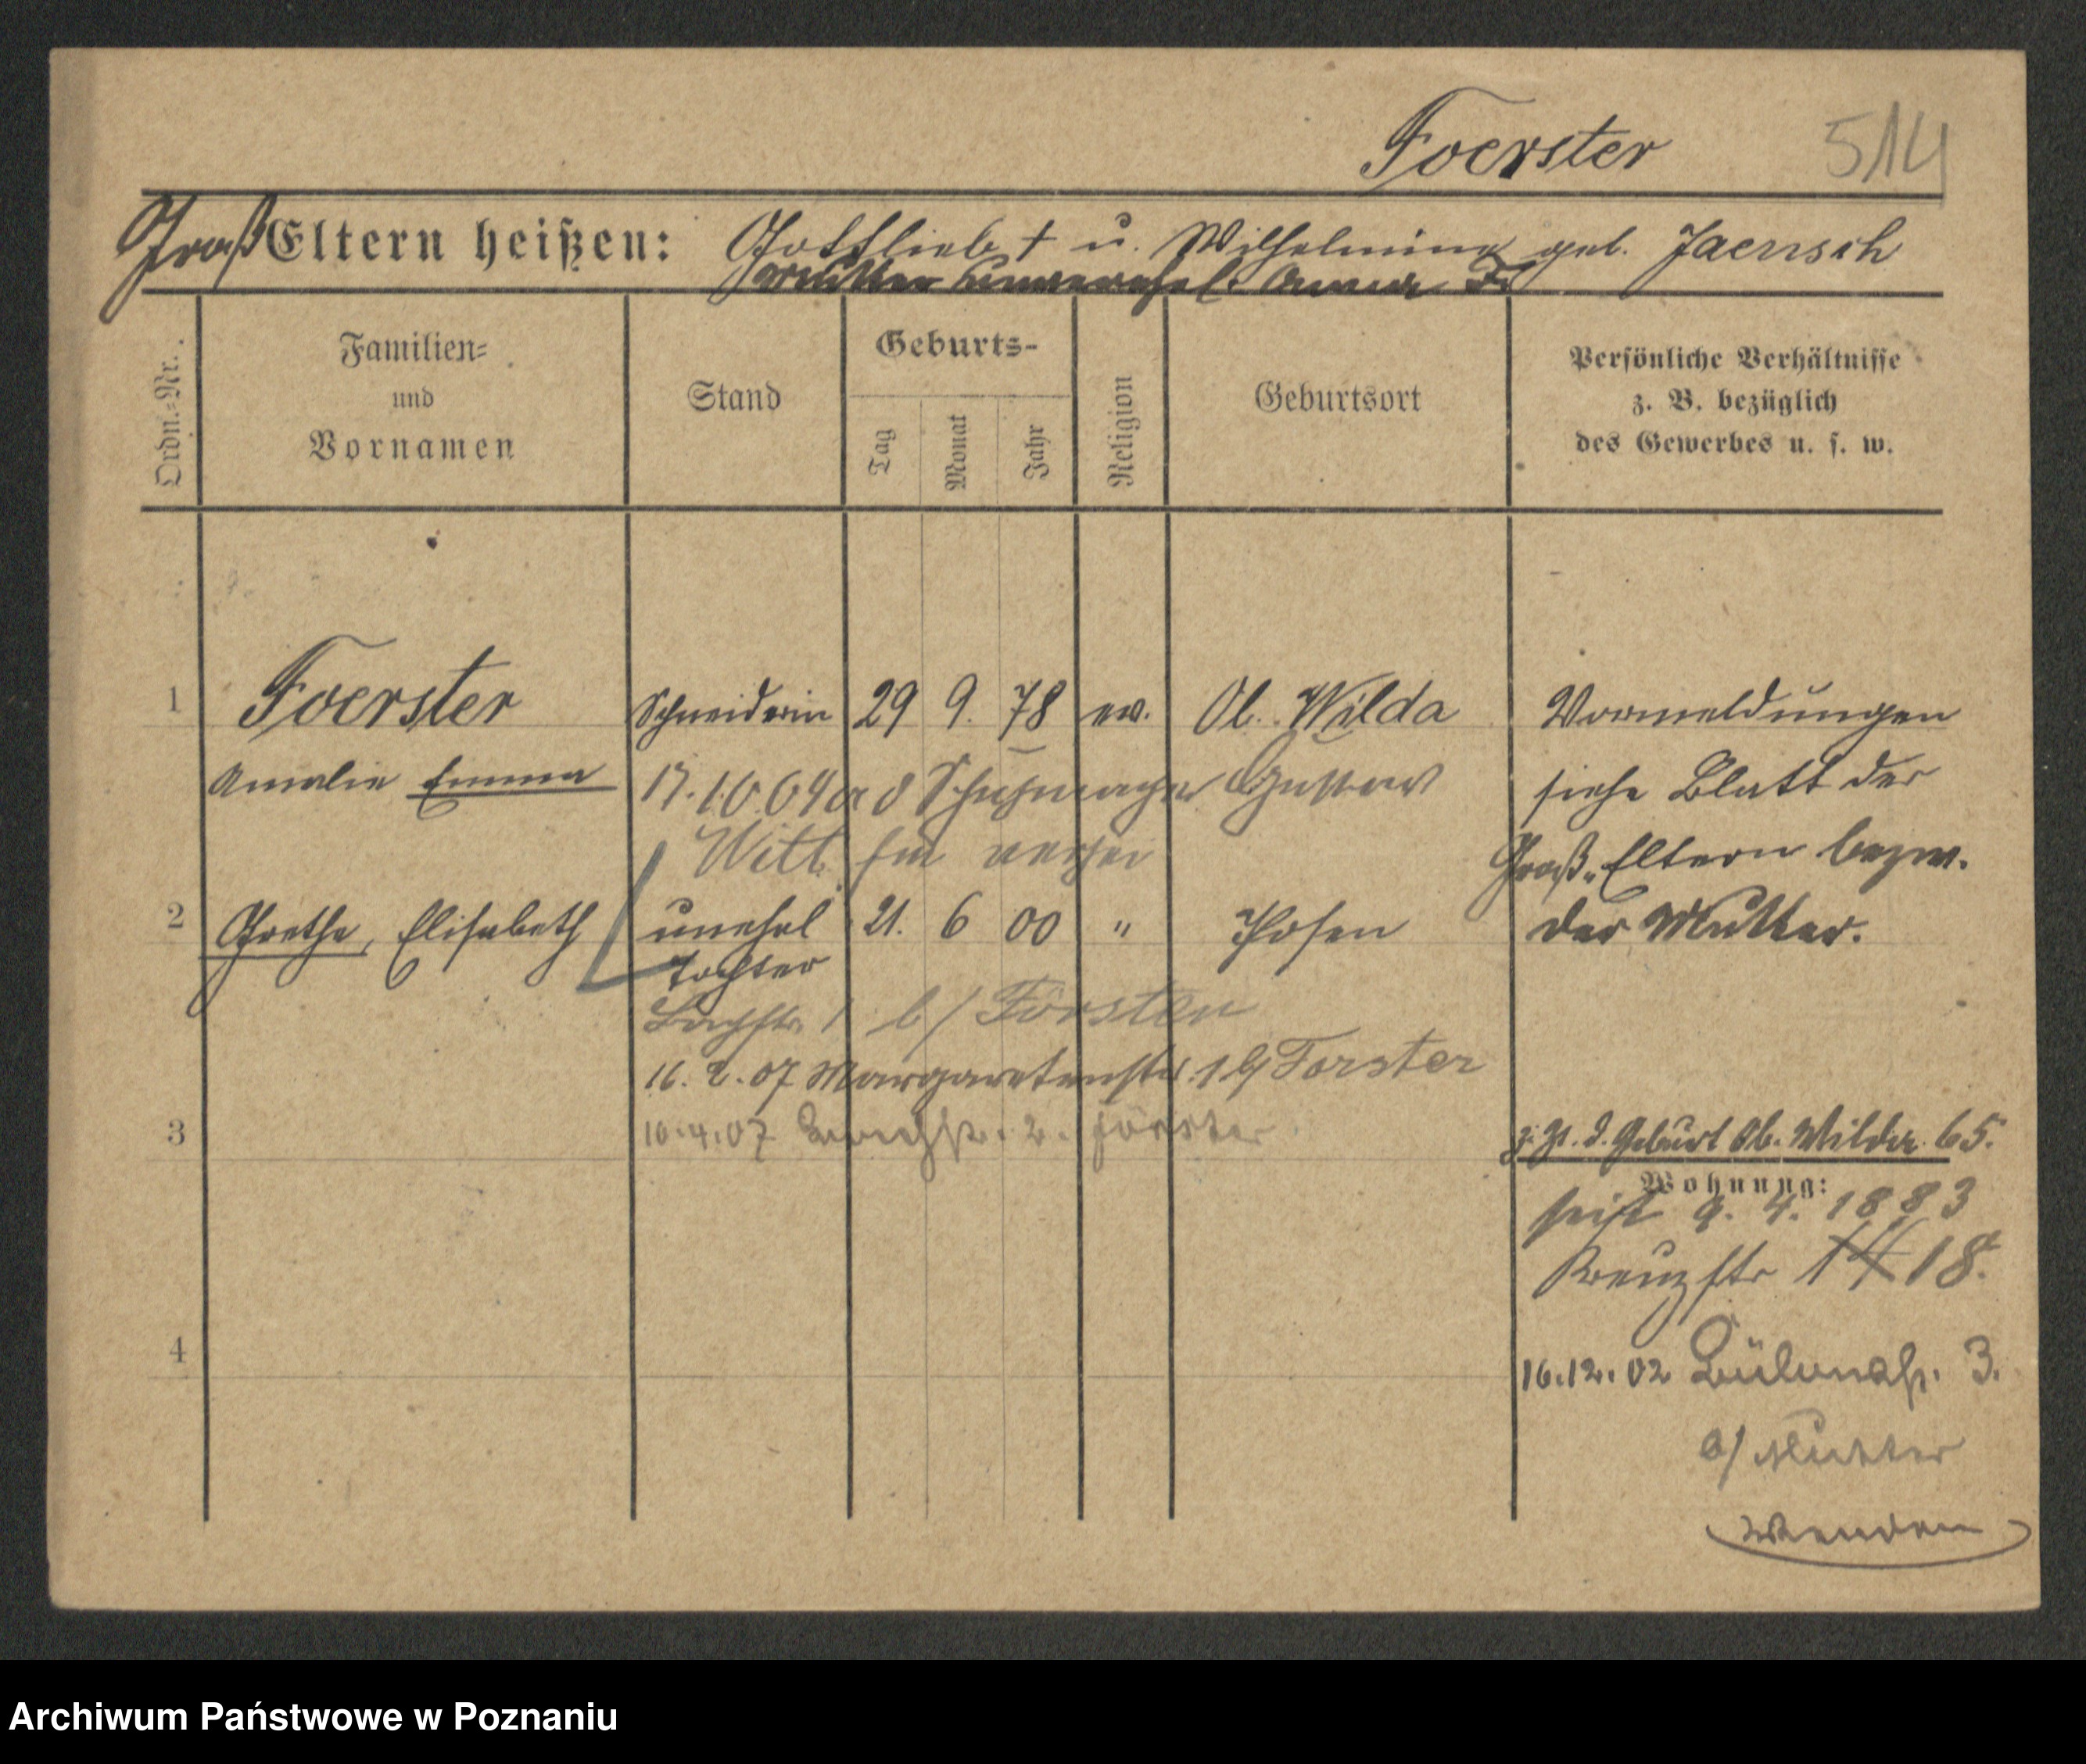 Foerster 514
Groß Eltern heißen: Gottlieb † u. Wilhelmine geb. Jaensch
Mutter unverehel. Anna F.
Ordn.-Nr.
Familien-
und
Vornamen
Stand
Geburts-
Tag
Monat
Jahr
Religion
Geburtsort
Persönliche Verhältnisse
z. B. bezüglich
des Gewerbes u. s. w.
1 Foerster Schneiderin 29 9. 78 ev. Ob. Wilda Vormeldungen
Amalie Emma 17.10.04 Schuhmacher Gustav siehe Blatt der
Witt Groß-Eltern bezw.
2 Grethe, Elisabeth unehel 21. 6 00 " Posen der Mutter.
Tochter
Bachstr. 1 b/ Förster
16.2.07 Margaretenstr. 1 b/ Forster
3 10.4.07 2. Förster
z. Zt. d. Geburt Ob. Wilda 65.
Wohnung:
seit 9. 4. 1883
Kreuzstr 14 18.
4 16.12.02 Bülowstr. 3.
b/ Mutter
Wenden
Archiwum Państwowe w Poznaniu